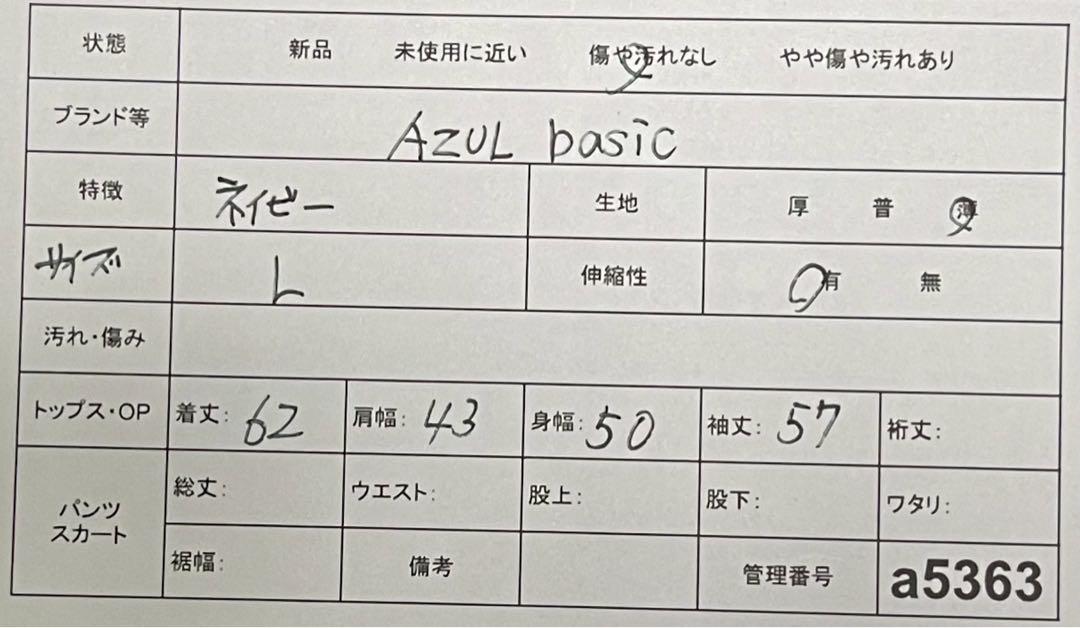 状態 新品 未使用に近い 傷や汚れなし やや傷や汚れあり
ブランド等 AZUL basic
特徴 ネイビー 生地 厚 普 薄
サイズ L 伸縮性 有 無
汚れ・傷み
トップス・OP 着丈: 62 肩幅: 43 身幅: 50 袖丈: 57 裄丈:
パンツ
スカート
総丈: ウエスト: 股上: 股下: ワタリ:
裾幅: 備考 管理番号 a5363